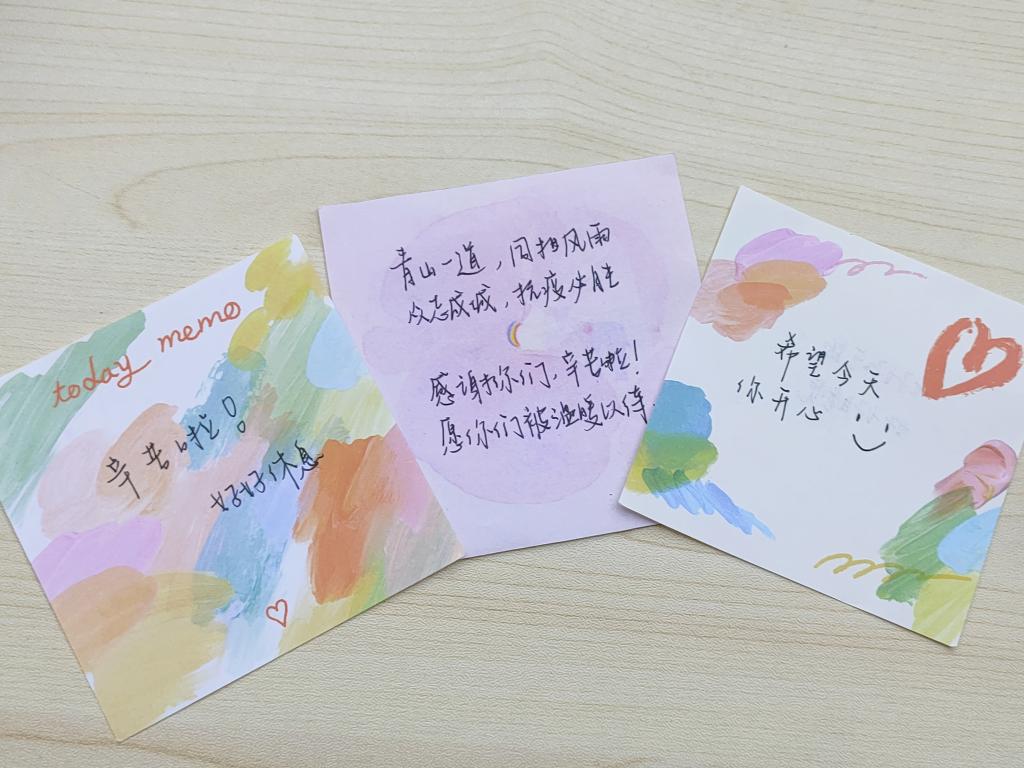 today memo
辛苦啦！
好好休息~
青山一道，同担风雨
众志成城，抗疫必胜
感谢你们，辛苦啦！
愿你们被温暖以待.
希望今天
你开心